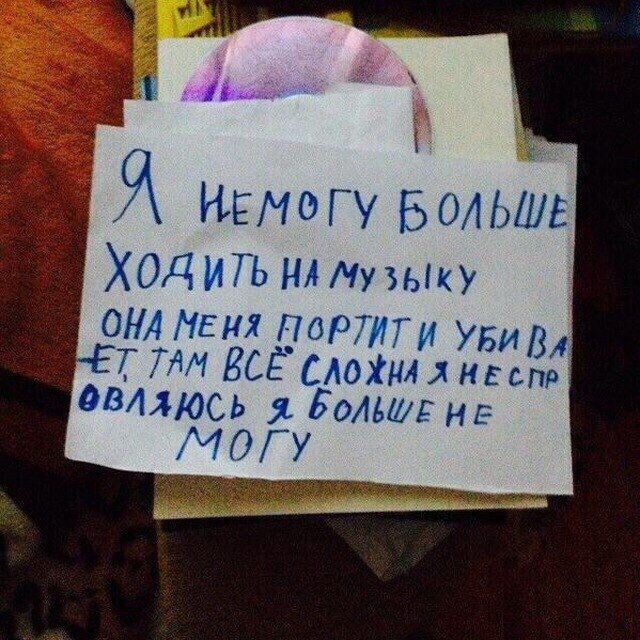 Я НЕМОГУ БОЛЬШЕ
ХОДИТЬ НА МУЗЫКУ
ОНА МЕНЯ ПОРТИТ И УБИВА
ЕТ, ТАМ ВСЁ СЛОЖНА Я НЕ СПР
ОВЛЯЮСЬ Я БОЛЬШЕ НЕ
МОГУ